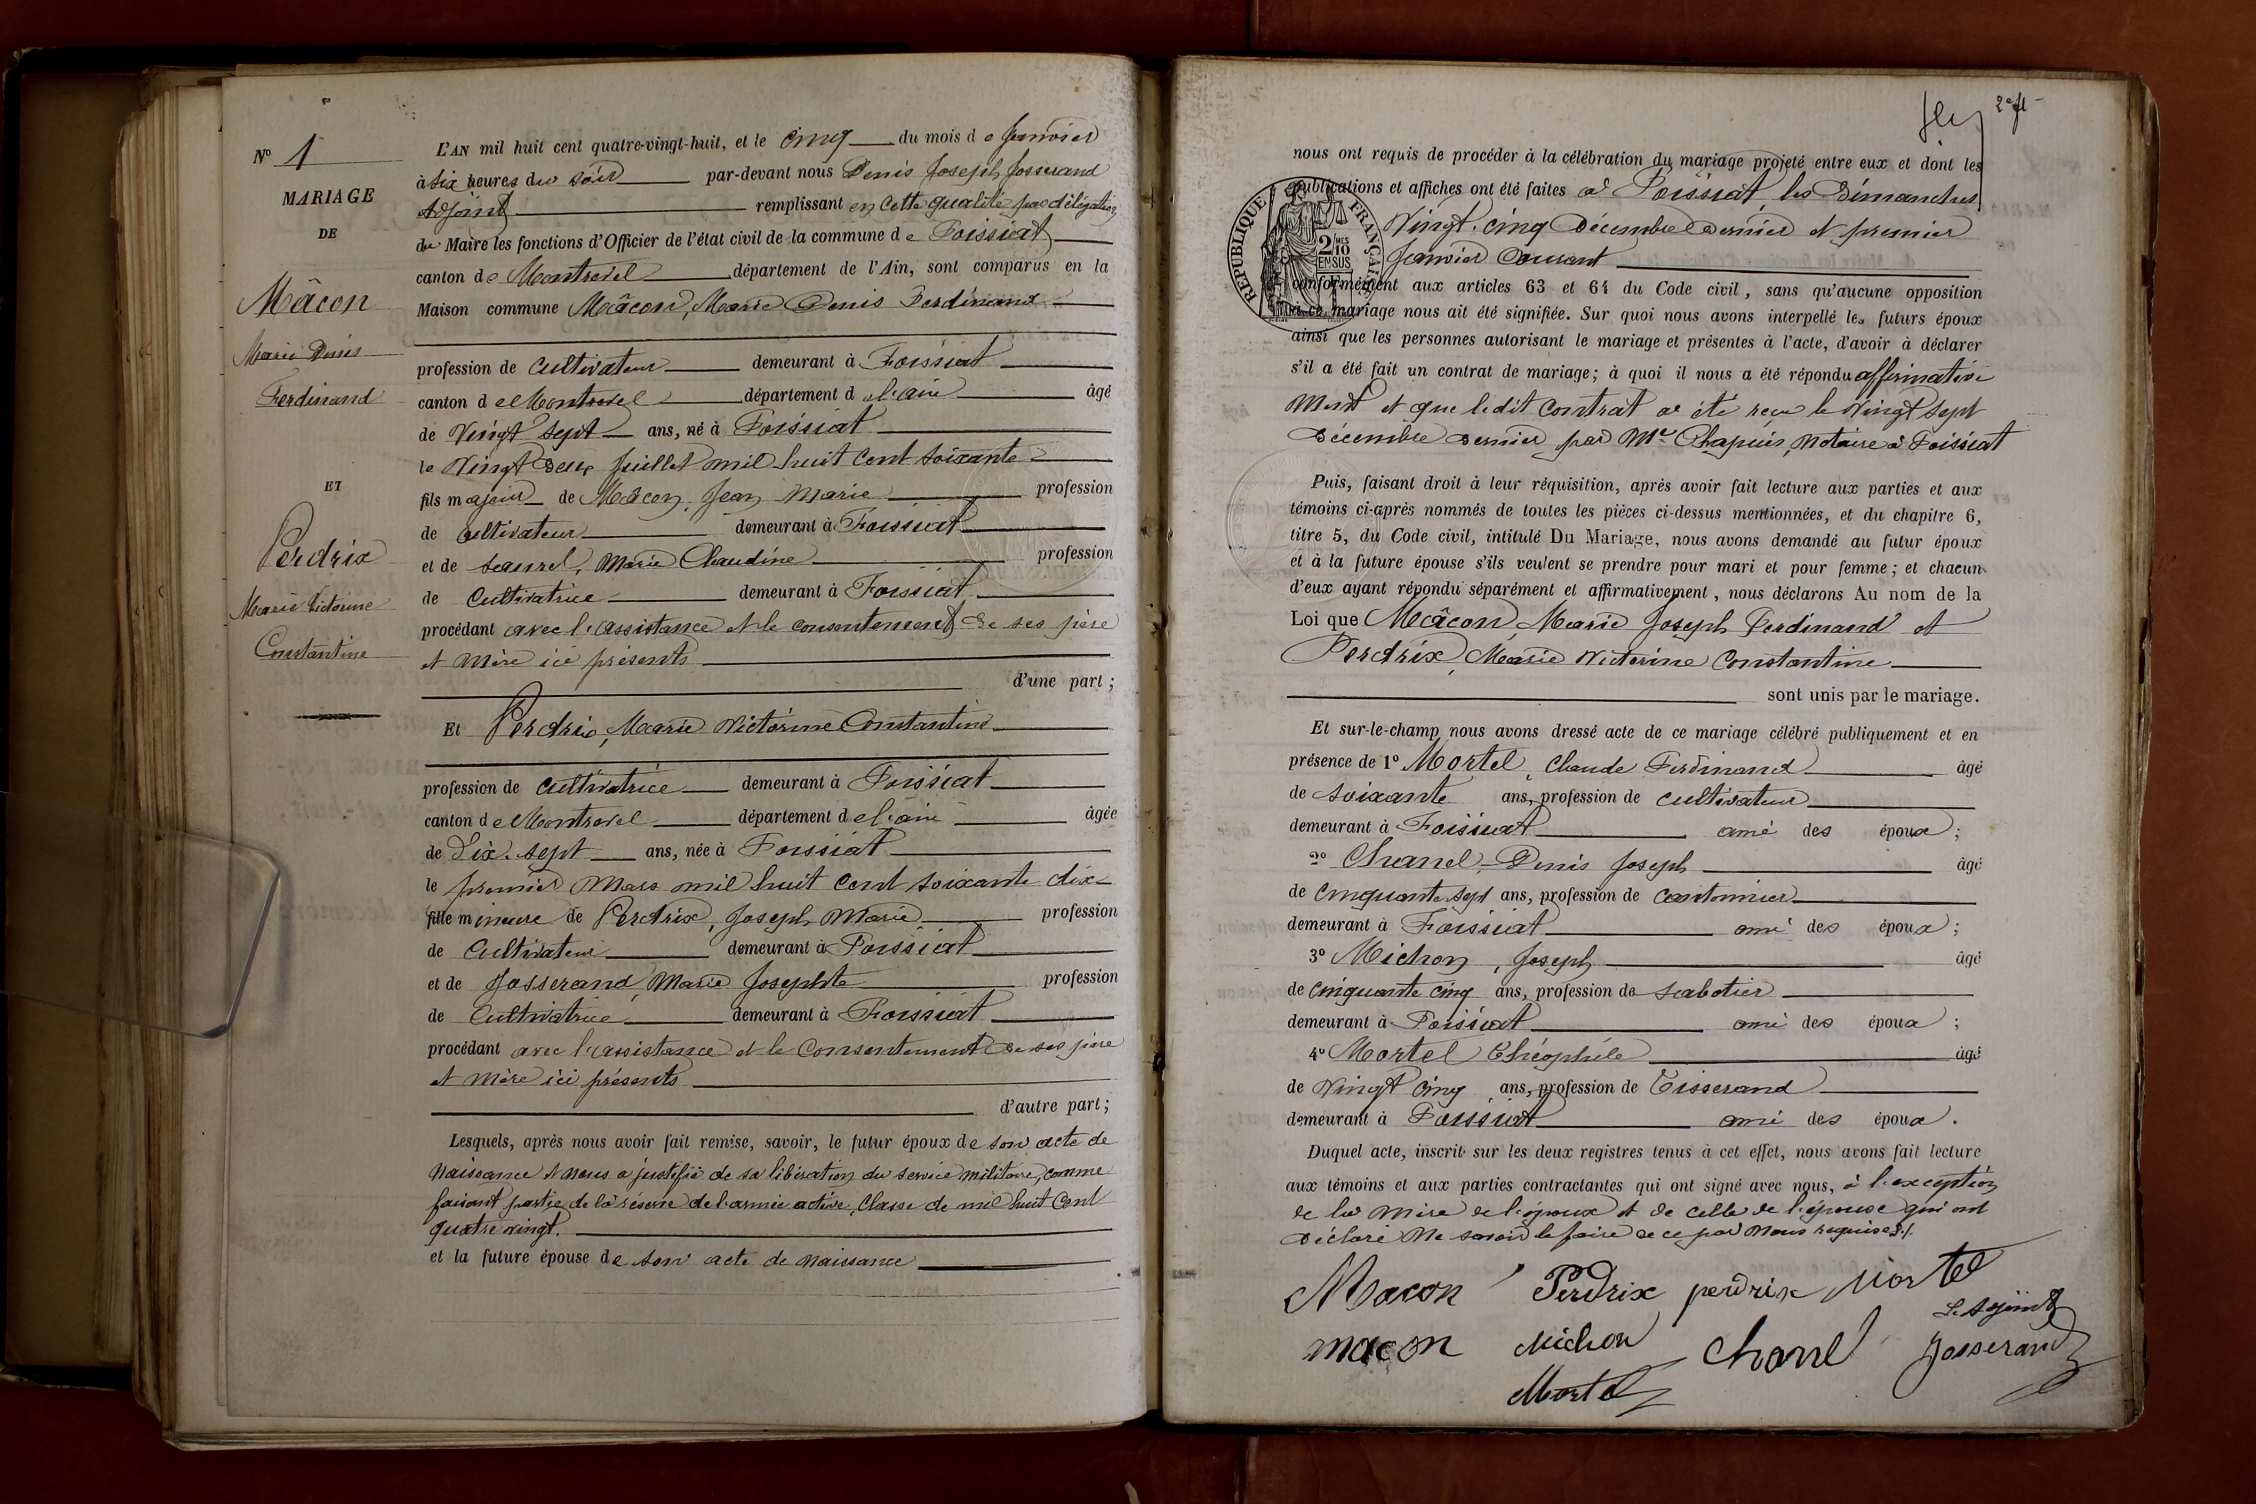 N° 1
MARIAGE
DE
Mâcon
Marie Denis
Ferdinand
ET
Perdrix
Marie Victorine
Constantine
L'AN mil huit cent quatre-vingt-huit, et le cinq du mois de Janvier
à six heures du soir par-devant nous Denis Joseph Josserand
Adjoint remplissant en cette qualité par délégation
du Maire les fonctions d'Officier de l'état civil de la commune de Foissiat
canton de Montrevel département de l'Ain, sont comparus en la
Maison commune Mâcon, Marie Denis Ferdinand
profession de cultivateur demeurant à Foissiat
canton de Montrevel département de l'ain âgé
de Vingt sept ans, né à Foissiat
le Vingt deux Juillet mil huit cent soixante
fils majeur de Mâcon, Jean Marie profession
de cultivateur demeurant à Foissiat
et de Marie Claudine profession
de cultivatrice demeurant à Foissiat
procédant avec l'assistance et le consentement de ses père
et mère ici présents
d'une part ;
Et Perdrix, Marie Victorine Constantine
profession de cultivatrice demeurant à Foissiat
canton de Montrevel département de l'ain âgée
de Dix-sept ans, née à Foissiat
le premier Mars mil huit cent soixante dix
fille mineure de Perdrix, Joseph Marie profession
de cultivateur demeurant à Foissiat
et de Josserand, Marie Josephte profession
de cultivatrice demeurant à Foissiat
procédant avec l'assistance et le consentement de ses père
et mère ici présents
d'autre part ;
Lesquels, après nous avoir fait remise, savoir, le futur époux de son acte de
naissance et nous a justifié de sa libération du service militaire, comme
faisant partie de la réserve de l'armée active, Classe de mil huit cent
quatre vingt.
et la future épouse de son acte de naissance
2e ft
nous ont requis de procéder à la célébration du mariage projeté entre eux et dont les
publications et affiches ont été faites à Foissiat, les Dimanches
Vingt-cinq Décembre Dernier et premier
Janvier Courant
RÉPUBLIQUE FRANÇAISE
2/10 EN SUS
conformément aux articles 63 et 64 du Code civil, sans qu'aucune opposition
à ce mariage nous ait été signifiée. Sur quoi nous avons interpellé les futurs époux
ainsi que les personnes autorisant le mariage et présentes à l'acte, d'avoir à déclarer
s'il a été fait un contrat de mariage ; à quoi il nous a été répondu affirmative
ment et que ledit contrat a été reçu le Vingt sept
Décembre Dernier par Me Chapuis, Notaire à Foissiat
Puis, faisant droit à leur réquisition, après avoir fait lecture aux parties et aux
témoins ci-après nommés de toutes les pièces ci-dessus mentionnées, et du chapitre 6,
titre 5, du Code civil, intitulé Du Mariage, nous avons demandé au futur époux
et à la future épouse s'ils veulent se prendre pour mari et pour femme ; et chacun
d'eux ayant répondu séparément et affirmativement, nous déclarons Au nom de la
Loi que Mâcon, Marie Joseph Ferdinand et
Perdrix, Marie Victorine Constantine
sont unis par le mariage.
Et sur-le-champ nous avons dressé acte de ce mariage célébré publiquement et en
présence de 1° Mortel, Claude Ferdinand âgé
de soixante ans, profession de cultivateur
demeurant à Foissiat ami des époux ;
2° Chanel, Denis Joseph âgé
de cinquante sept ans, profession de cantonnier
demeurant à Foissiat ami des époux ;
3° Michon, Joseph âgé
de cinquante cinq ans, profession de sabotier
demeurant à Foissiat ami des époux ;
4° Mortel Théophile âgé
de Vingt cinq ans, profession de Tisserand
demeurant à Foissiat ami des époux.
Duquel acte, inscrit sur les deux registres tenus à cet effet, nous avons fait lecture
aux témoins et aux parties contractantes qui ont signé avec nous, à l'exception
de la mère de l'époux et de celle de l'épouse qui ont
déclaré ne savoir le faire de ce par nous requises.
Macon Perdrix perdrix Mortel
L'adjoint
macon Michon Chanel Josserand
Mortel